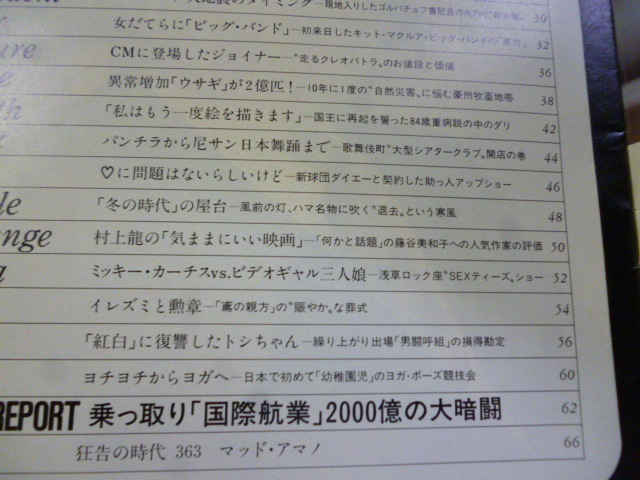 のタイミング―現地入りしたゴルバチョフ書記長の 30
女だてらに「ビッグ・バンド」―初来日したキット・マクルア・ビッグ・バンドの“実力” 32
CMに登場したジョイナー―“走るクレオパトラ”のお値段と価値 36
異常増加「ウサギ」が2億匹!―10年に1度の“自然災害”に悩む豪州牧畜地帯 38
「私はもう一度絵を描きます」―国王に再起を誓った84歳重病説の中のダリ 42
パンチラから尼サン日本舞踊まで―歌舞伎町“大型シアタークラブ”開店の巻 44
♡に問題はないらしいけど―新球団ダイエーと契約した助っ人アップショー 46
「冬の時代」の屋台―風前の灯、ハマ名物に吹く“退去”という寒風 48
村上龍の「気ままにいい映画」―「何かと話題」の藤谷美和子への人気作家の評価 50
ミッキー・カーチスvs.ビデオギャル三人娘―浅草ロック座“SEXティーズ”ショー 52
イレズミと勲章―「鳶の親方」の“賑やか”な葬式 54
「紅白」に復讐したトシちゃん―繰り上がり出場「男闘呼組」の損得勘定 56
ヨチヨチからヨガへ―日本で初めて「幼稚園児」のヨガ・ポーズ競技会 60
REPORT 乗っ取り「国際航業」2000億の大暗闘 62
狂告の時代 363 マッド・アマノ 66